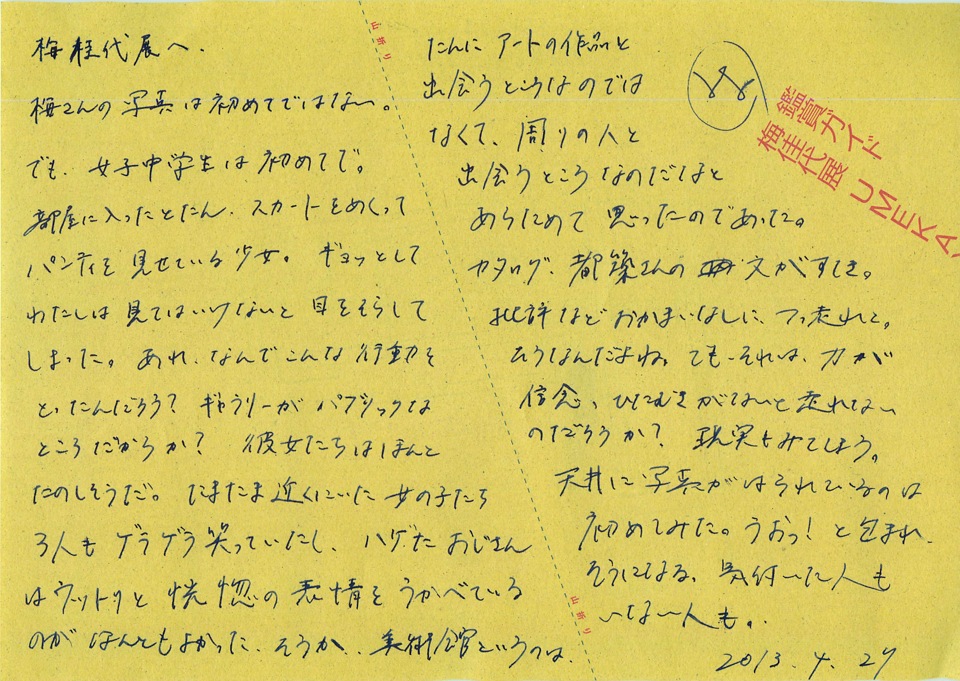 梅佳代展へ.
梅さんの写真は初めてではない。
でも、女子中学生は初めてで。
部屋に入ったとたん、スカートをめくって
パンティを見せている少女。ギョッとして
わたしは見てはいけないと目をそらして
しまった。あれ、なんでこんな行動を
とったんだろう?ギャラリーがパブリックな
ところだからか?彼女たちはほんと
たのしそうだ。たまたま近くにいた女の子たち
3人もゲラゲラ笑っていたし、ハゲたおじさん
はウットリと恍惚の表情をうかべている
のがなんともよかった。そうか、美術館というのは、
たんにアートの作品と
出会うところなのでは
なくて、周りの人と
出会うところなのだなと
あらためて思ったのであった。
カタログ、都築さんの文がすてき。
批評などおかまいなしに、つっ走れと。
そうなんだよね。でも、それは、力が
信念、ひたむきがないと走れない
のだろうか?現実よみてしまう。
天井に写真がはられているのは
初めてみた。うおっ!と包まれ
そうになる。気付いた人も
いない人も。
2013.4.27
山折り
山折り
鑑賞ガイド
梅佳代展 UMEKA